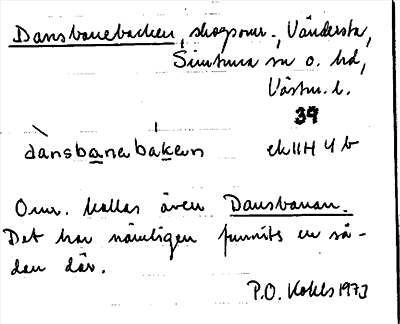 Dansbanebacken, skogsomr., Vändersta,
Simtuna sn o. hd,
Västm. l.
39
dànsbanebakən ek 11H 4 b
Omr. kallas även Dansbanan.
Det har nämligen funnits en så-
dan där.
P.O. Kohls 1973